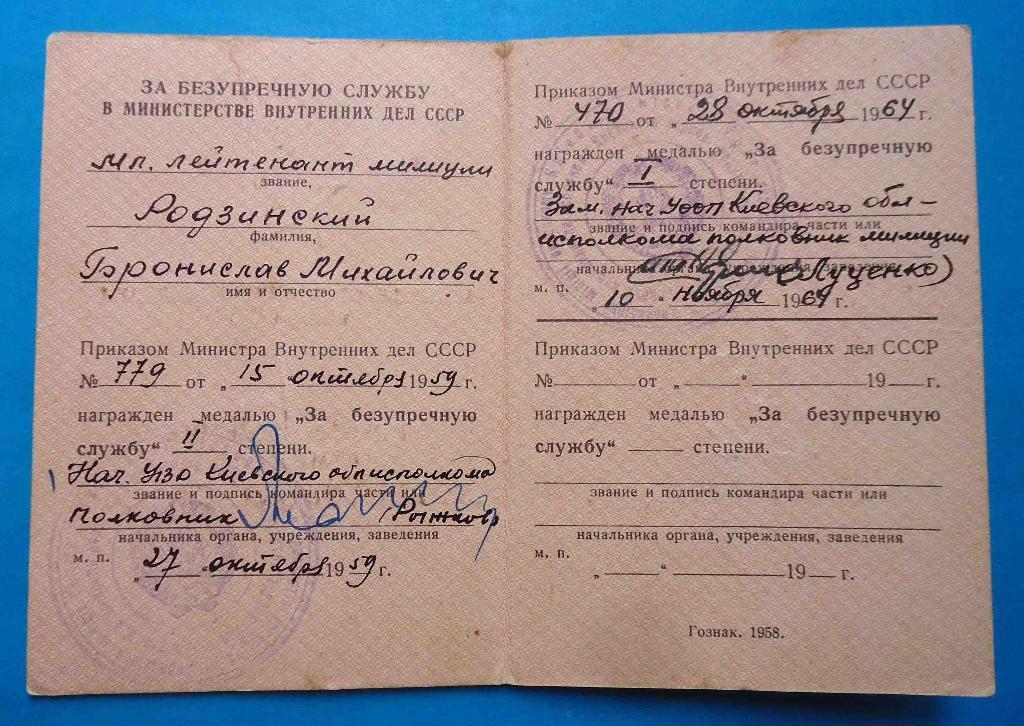 ЗА БЕЗУПРЕЧНУЮ СЛУЖБУ
В МИНИСТЕРСТВЕ ВНУТРЕННИХ ДЕЛ СССР
Мл. лейтенант милиции
звание,
Родзинский
фамилия,
Бронислав Михайлович
имя и отчество
Приказом Министра Внутренних дел СССР
№ 779 от „15 октября 1959 г.
награжден медалью „За безупречную
службу“ II степени.
Нач. УВО Киевского облисполкома
звание и подпись командира части или
полковник (Рыжков)
начальника органа, учреждения, заведения
м. п.
„27 “ октября 1959 г.
Приказом Министра Внутренних дел СССР
№ 470 от „28 октября 1964 г.
награжден медалью „За безупречную
службу“ I степени.
Зам. нач УООП Киевского обл-
звание и подпись командира части или
исполкома полковник милиции
начальника органа, учреждения, заведения
(Луценко)
м. п.
„10 “ ноября 1964 г.
Приказом Министра Внутренних дел СССР
№ от „ “ 19 г.
награжден медалью „За безупречную
службу“ степени.
звание и подпись командира части или
начальника органа, учреждения, заведения
м. п.
„ “ 19 г.
Гознак. 1958.